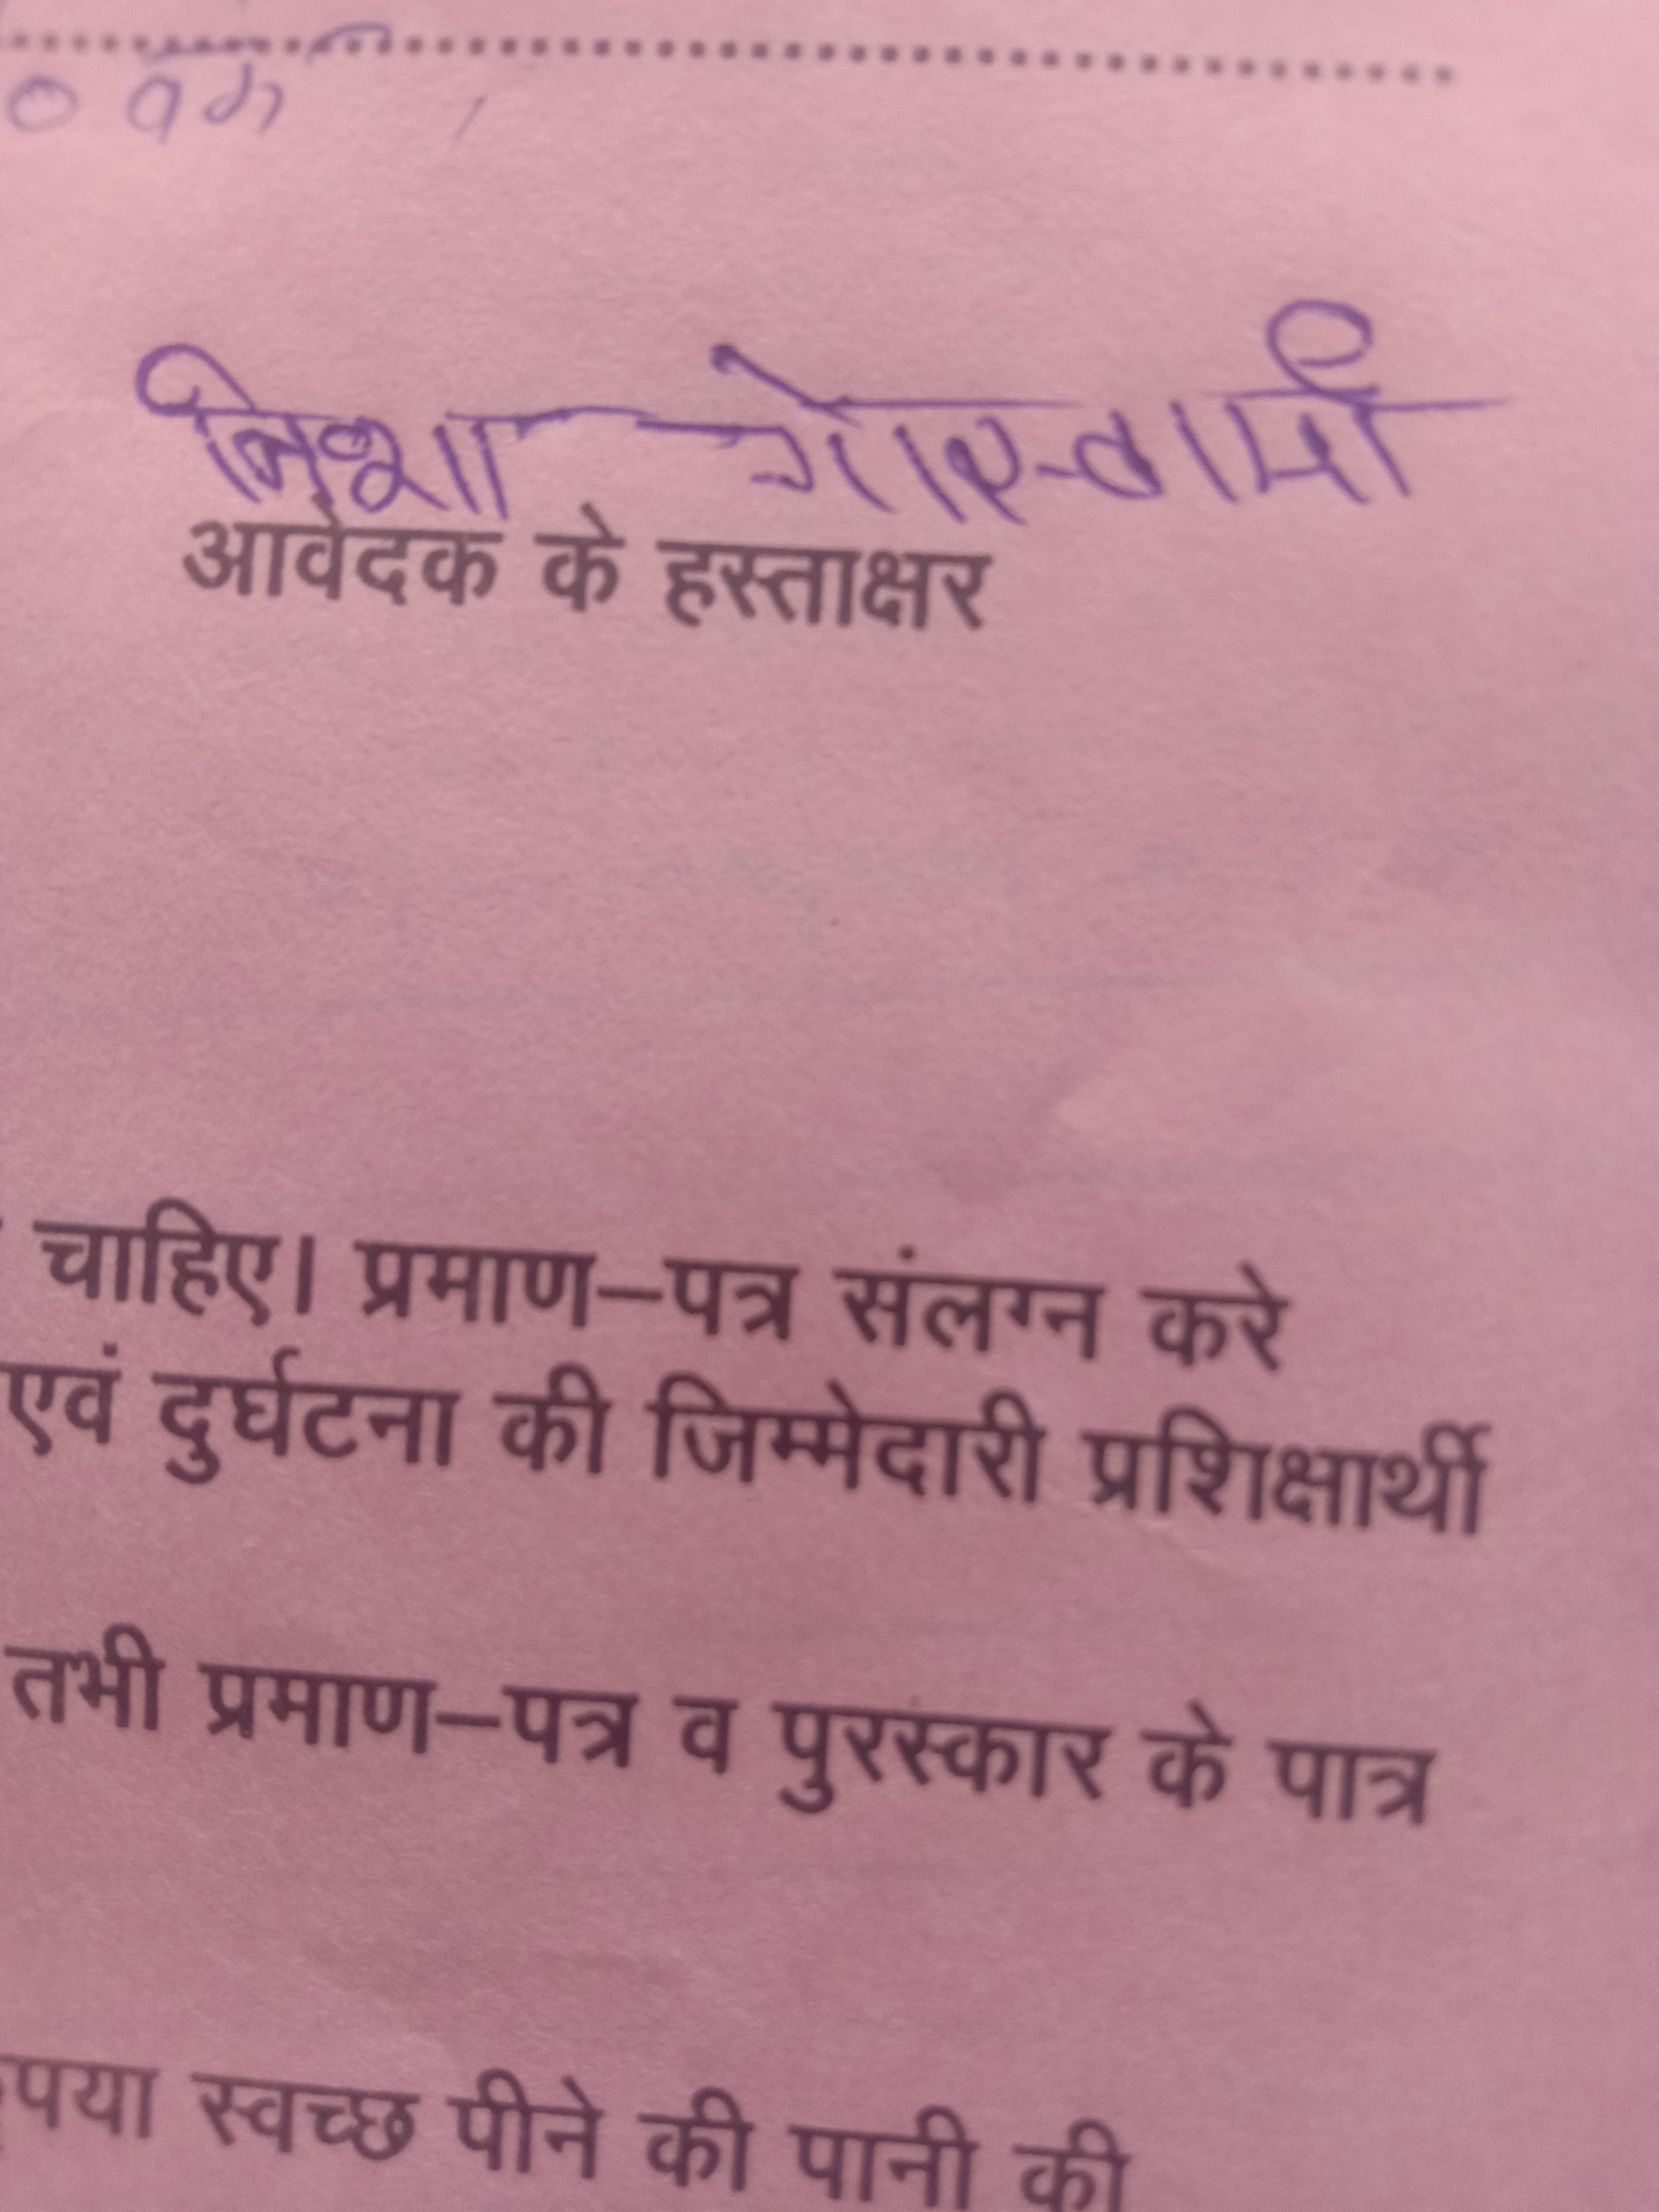 निशा गोस्वामी
आवेदक के हस्ताक्षर
चाहिए। प्रमाण–पत्र संलग्न करे
एवं दुर्घटना की जिम्मेदारी प्रशिक्षार्थी
तभी प्रमाण–पत्र व पुरस्कार के पात्र
स्वच्छ पीने की पानी की